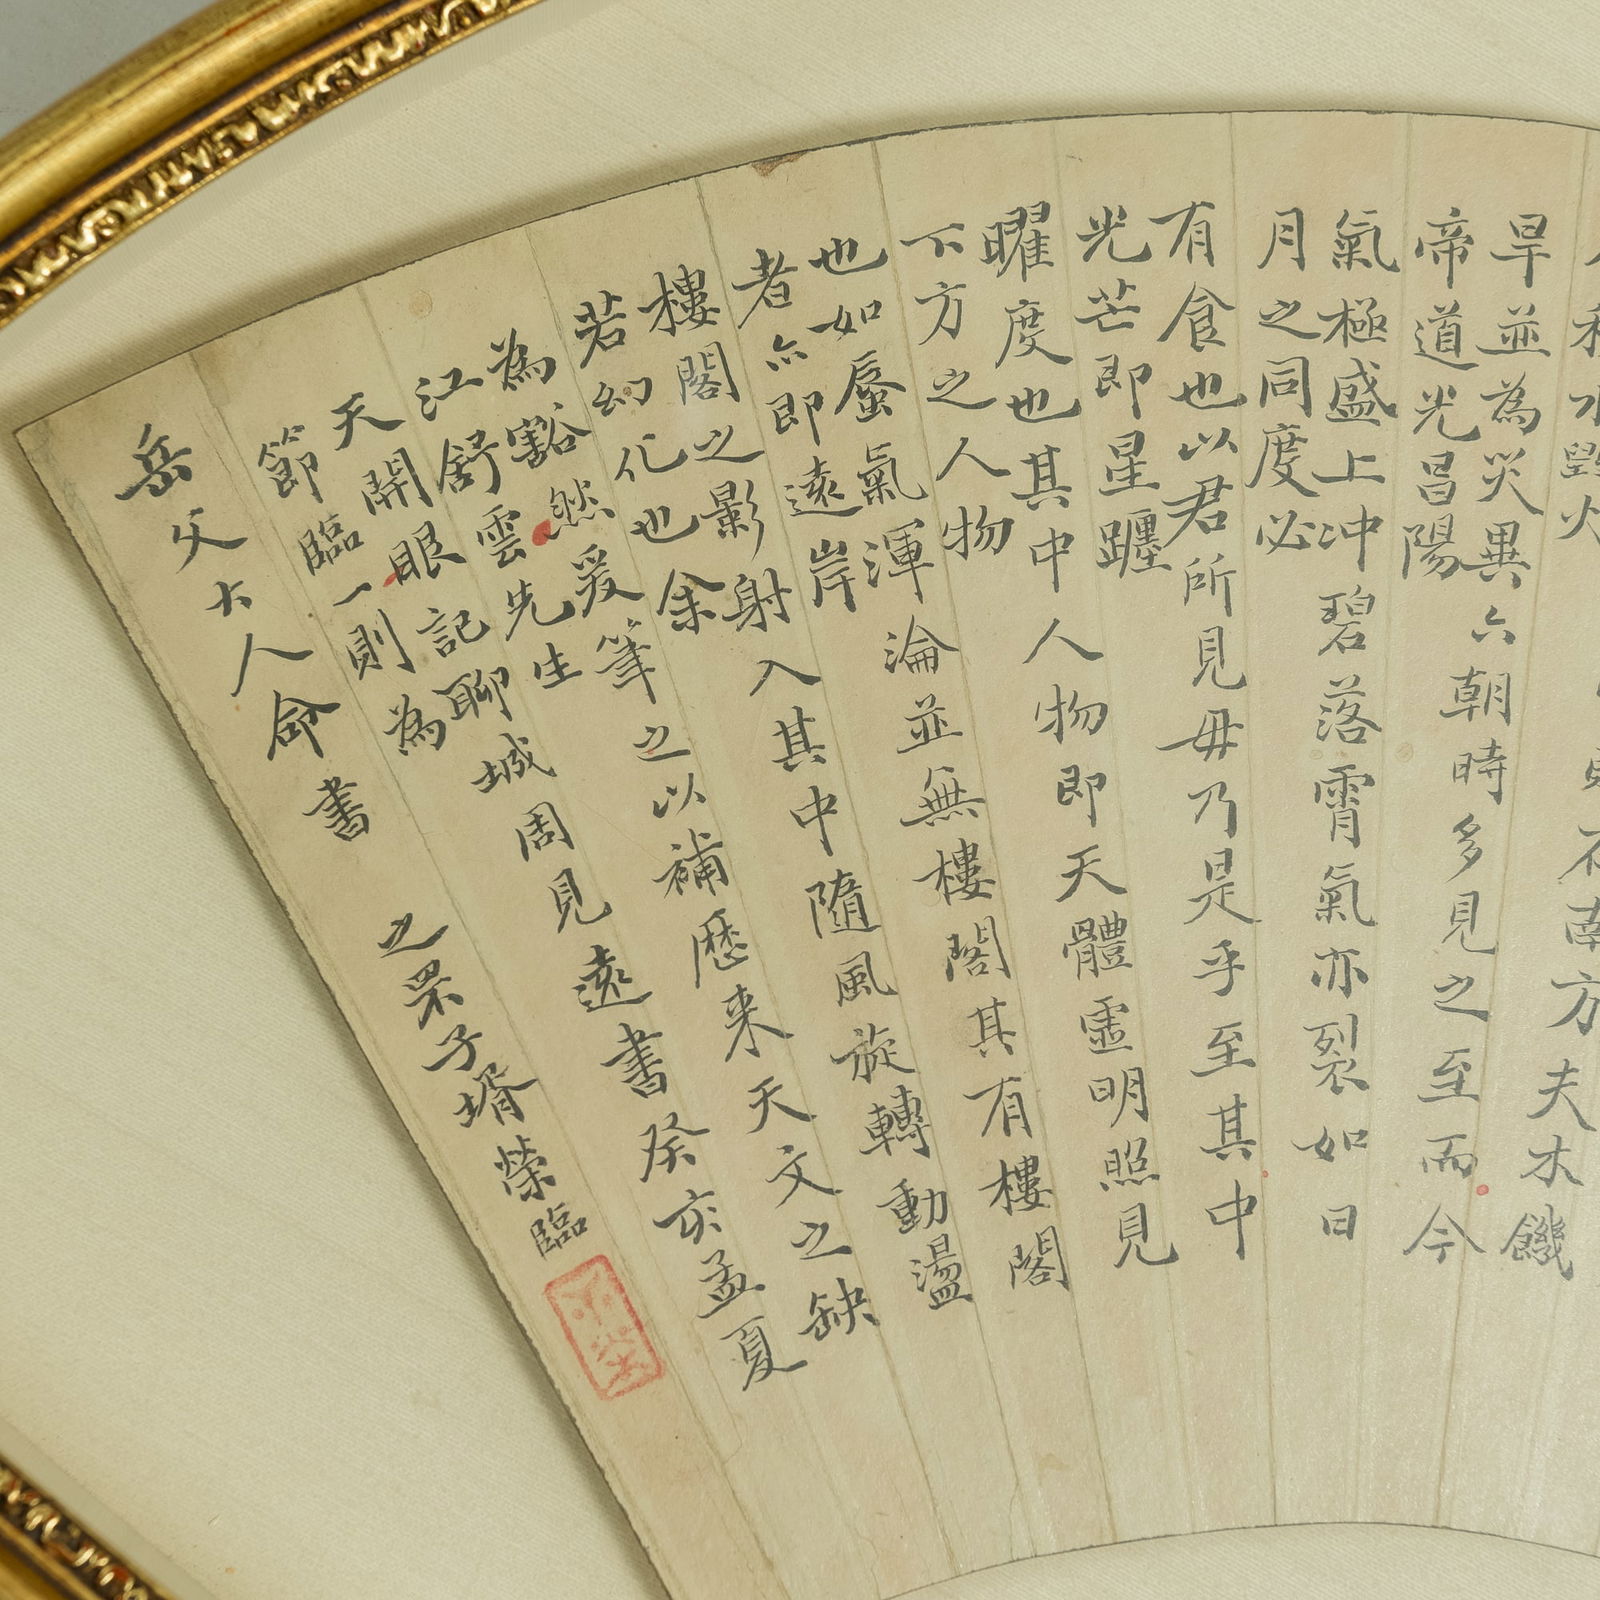 夫木饑
旱並為災異六朝時多見之至而今
帝道光昌陽
氣極盛上冲碧落霄氣亦裂如日
月之同度必
有食也以君所見毋乃是乎至其中
光芒即星躔
曜度也其中人物即天體霊明照見
下方之人物
也如蜃氣渾淪並無樓閣其有樓閣
者亦即遠岸
樓閣之影射入其中隨風旋轉動盪
若幻化也余
為豁然爰筆之以補歷来天文之缺
江舒雲先生
天開眼記聊城周見遠書癸亥孟夏
節臨一則為
岳父大人命書 之罘子壻榮臨